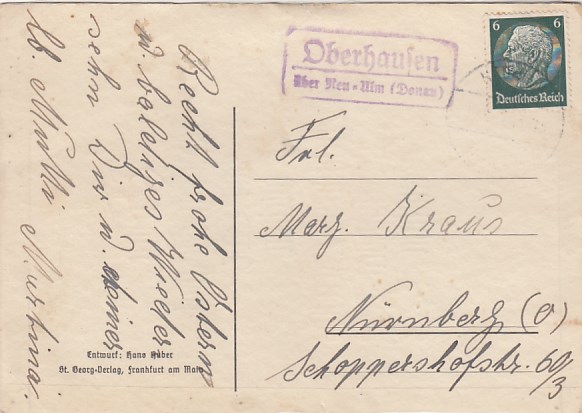 Recht frohe Ostern
u. baldiges Wieder
sehn Dir u. deiner
lb. Mutti Martina.
Entwurf: Hans Huber
St. Georg-Verlag, Frankfurt am Main
Oberhausen
über Neu-Ulm (Donau)
6 6
Deutsches Reich
Frl.
Marg. Kraus
Nürnberg (O)
Schoppershofstr. 69/3